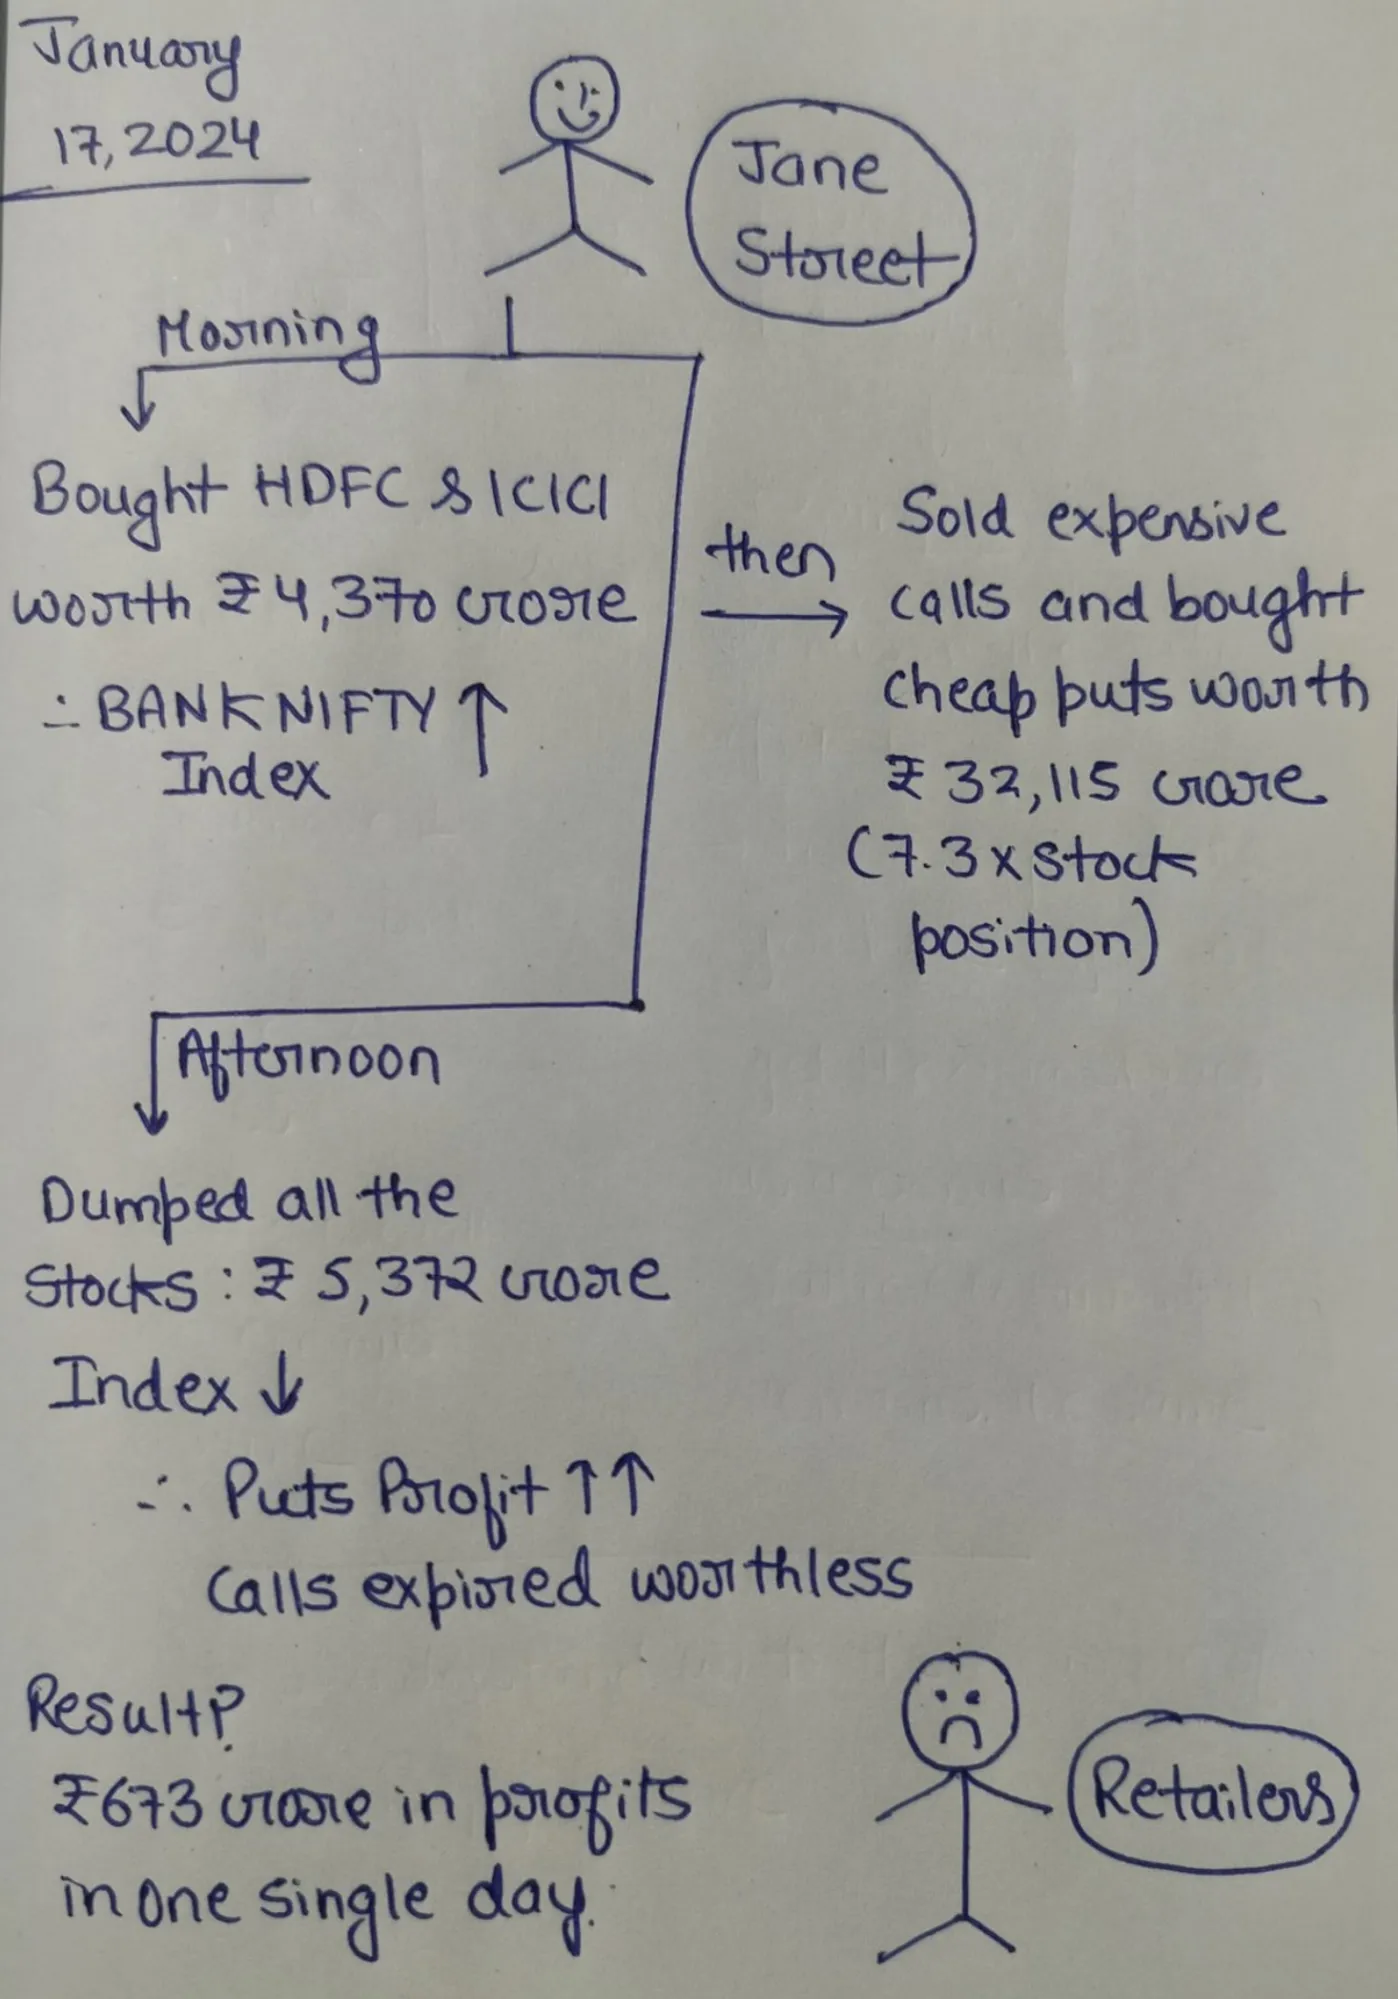 January
17, 2024
Jane
Street
Morning
Bought HDFC & ICICI
worth ₹4,370 crore
∴ BANKNIFTY ↑
Index
then
→
Sold expensive
calls and bought
cheap puts worth
₹ 32,115 crore
(7.3 x stock
position)
Afternoon
Dumped all the
Stocks : ₹ 5,372 crore
Index ↓
∴ Puts Profit ↑↑
Calls expired worthless
Result?
₹673 crore in profits
in one single day.
Retailers